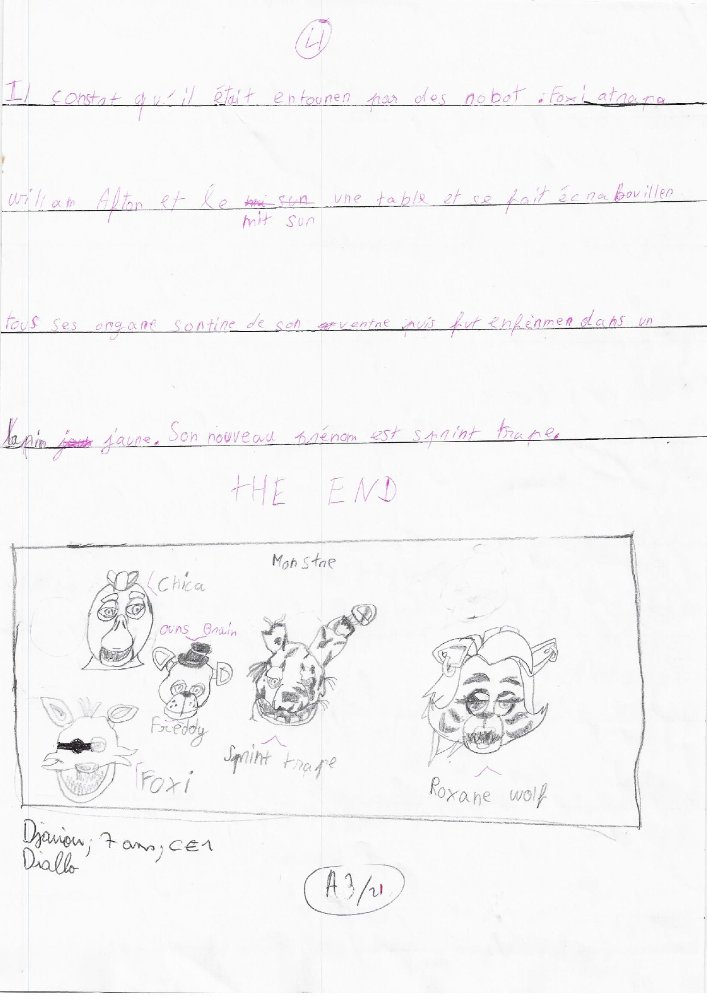 4
Il constat qu'il était entouner par des robot. Foxi atrara
wiliam Afton et le mit sur une table et se fait écrabouiller
tous ses organe sortire de son ventre puis fut enfermer dans un
lapin jaune. Son nouveau prénom est sprint trape.
THE END
Monstre
Chica
ours Brain
Freddy
Foxi
Sprint trape
Roxane wolf
7 ans, CE1
Diallo
A3/21